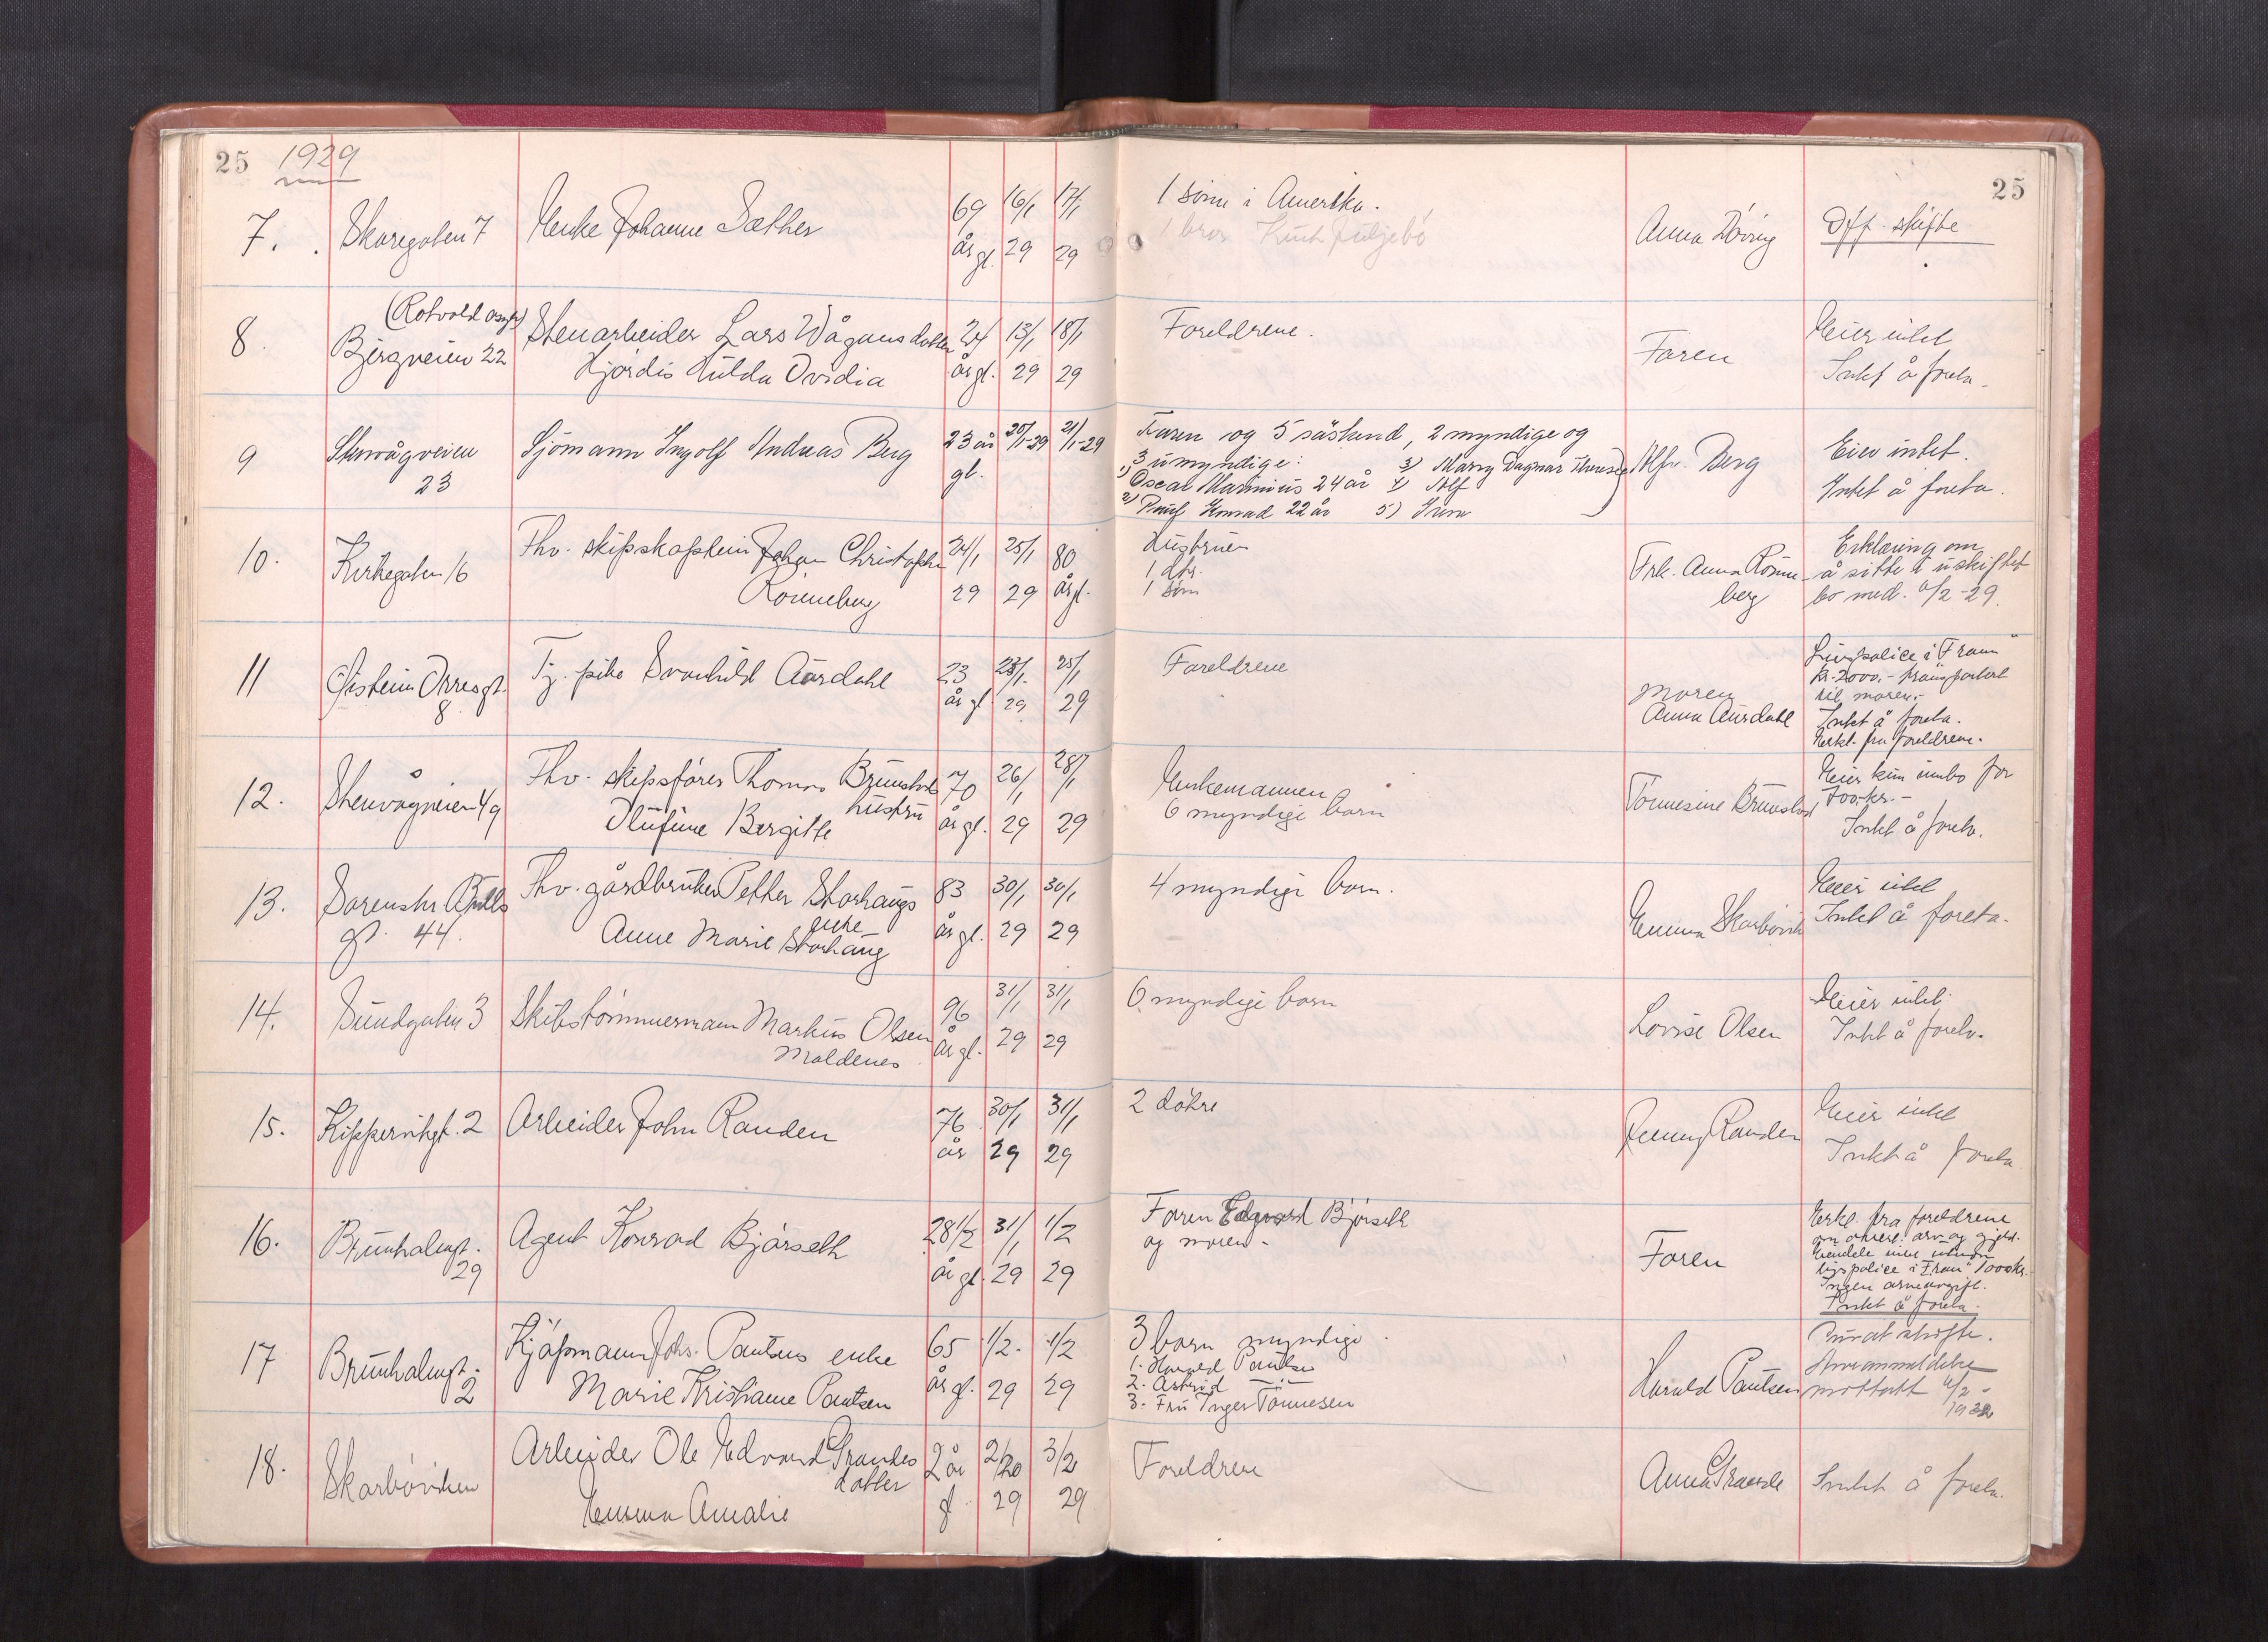 25 1929
25
7. Skaregaten 7 Enke Johanne Sæther 69 år gl. 16/1 29 17/1 29
1 sönn i Amerika.
1 bror
Anna Döving
Off. skifte
8. (Rotvold asyl)
Bjergveien 22
Stenarbeider Lars Vågans datter
Hjördis Hulda Ovidia
24 år gl. 13/1 29 18/1 29
Foreldrene.
Faren
Eier intet
Intet å foreta.
9 Stenvågveien
23
Sjömann Ingolf Andreas Berg
23 år gl. 20/1-29 21/1-29
Faren og 5 söskend, 2 myndige og
3 umyndige: 3) Marry Dagmar Therese
1) Oscar Marinius 24 år 4) Alf
2) Konrad 22 år 5)
Berg
Eier intet.
Intet å foreta.
10. Kirkegaten 16
Fhv. skipskaptein Johan Christopher
Rönneberg
24/1 29 25/1 29 80 år gl.
Hustruen
1 dtr.
1 sönn
Frk. Anna Rönne-
berg
Erklæring om
å sitte i uskiftet
bo med. 6/2-29.
11 Øistein Orresgt.
8
Tj. pike Svanhild Aursdahl
23 år gl 23/1. 29 25/1 29
Foreldrene
Moren
Anna Aursdahl
Livspolice i "Fram"
kr. 2000.- transportert
til moren.-
Intet å foreta.
Erkl. fra foreldrene.
12. Stenvågveien 49
Fhv. skipsförer Thomas Brunstad
hustru
Olufine Bergitte
70 år gl. 26/1 29 28/1 29
Enkemannen
6 myndige barn
Tönnesine Brunstad
Eier kun innbo for
700 kr.-
Intet å foreta.
13. Sorenskr. Bulls
gt. 44.
Fhv. gårdbruker Petter Storhaugs
enke
Anne Marie Storhaug
83 år gl. 30/1 29 30/1 29
4 myndige barn.
Emma Skarbövik
Eier intet
Intet å foreta.
14. Sundgaten 3
Skibstömmermann Markus Olsen
Moldenes
96 år gl. 31/1 29 31/1 29
6 myndige barn
Lovise Olsen
Eier intet.
Intet å foreta.
15. Kippervikgt. 2 Arbeider John Randen
76 år 30/1 29 31/1 29
2 døtre
Jenny Randen
Eier intet
Intet å foreta
16. Brunholmgt.
29
Agent Konrad Bjørseth
28 1/2 år gl. 31/1 29 1/2 29
Faren Edvard Bjørseth
og moren.
Faren
Erkl. fra foreldrene
om overt. arv og gjeld.
Eiendele intet uten
livspolice i "Fram" 1000 kr.
Ingen arveavgift.
Intet å foreta.
17 Brunholmgt.
2
Kjøpmann Johs. Pautsens enke
Marie Kristianne Pautsen
65 år gl. 1/2. 29 1/2 29
3 barn myndige.
1. Harald Pautsen
2. Astrid —"—
3. Fru Inger Tönnesen
Harald Pautsen
Privat skifte.
Arveanmeldelse
mottatt 4/2 -
18. Skarböviken
Arbeider Ole Edvard Grandes
datter
Emma Amalie
2 år gl 2/2 29 3/2 29
Foreldrene
Anna Grande
Intet å foreta.